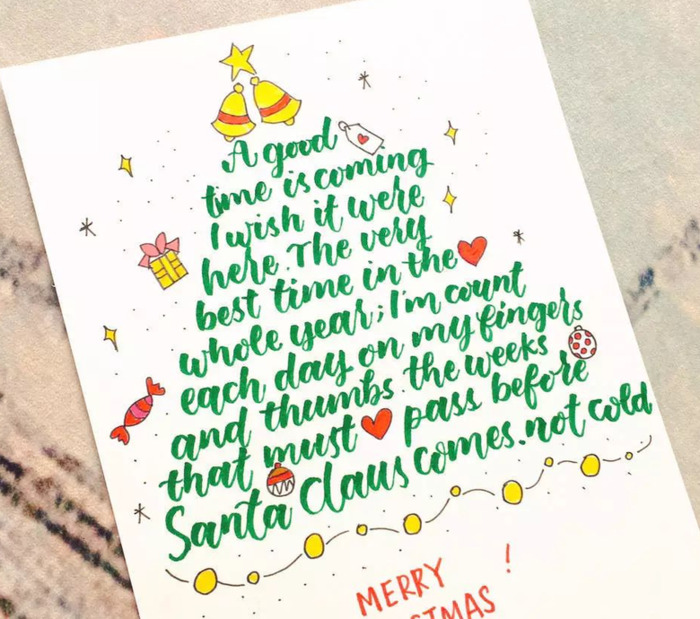 A good
time is coming
I wish it were
here. The very
best time in the
whole year; I'm count
each day on my fingers
and thumbs. the weeks
that must pass before
Santa Claus comes. not cold
MERRY !